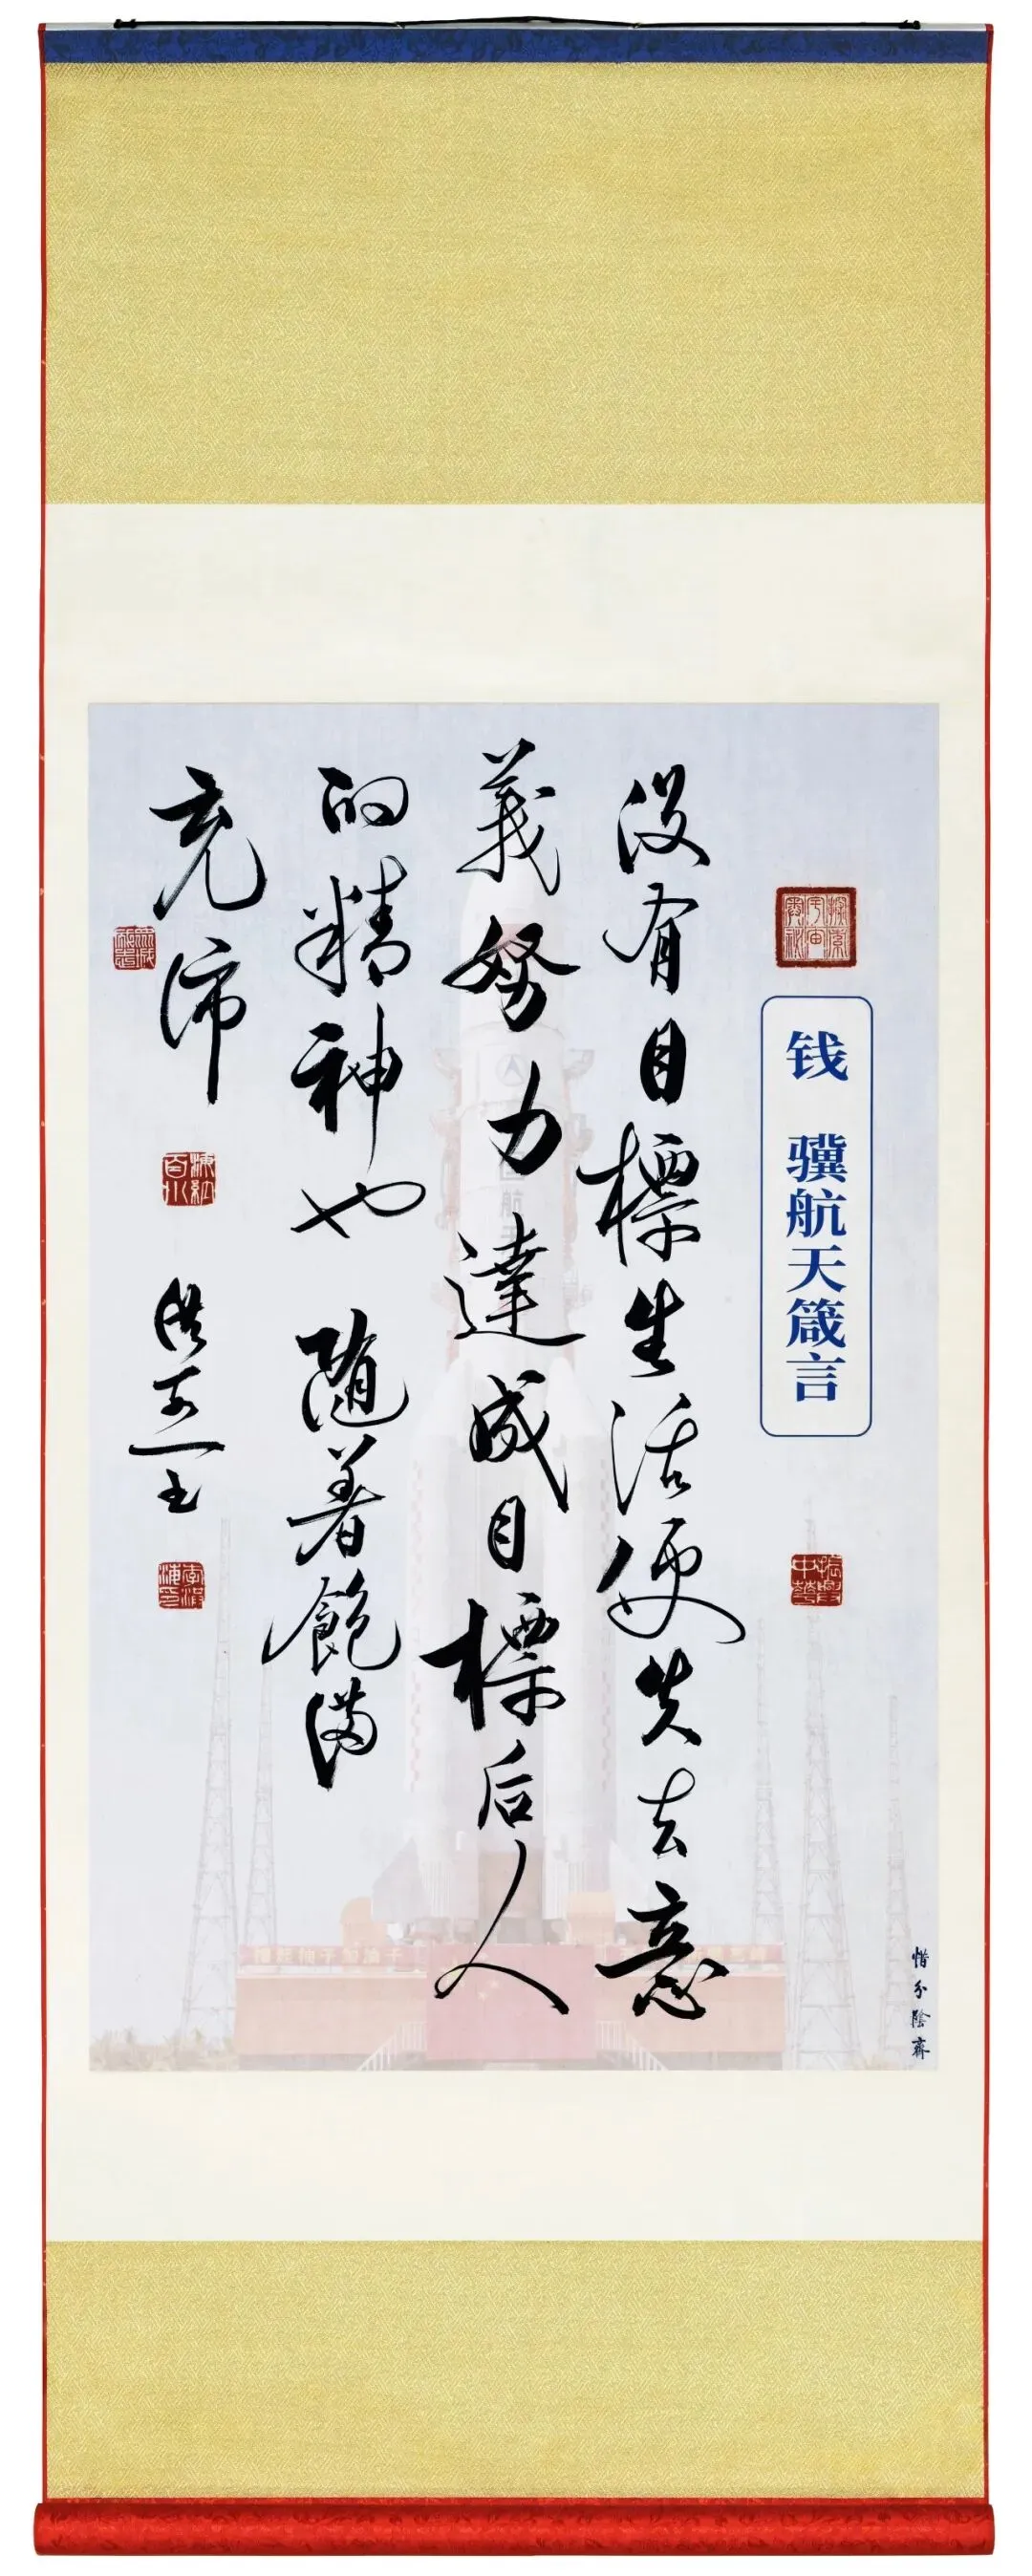 钱 骥航天箴言
没有目標生活便失去意
義努力達成目標后人
的精神也 随着飽满
充沛
惜分陰齋
振興中華